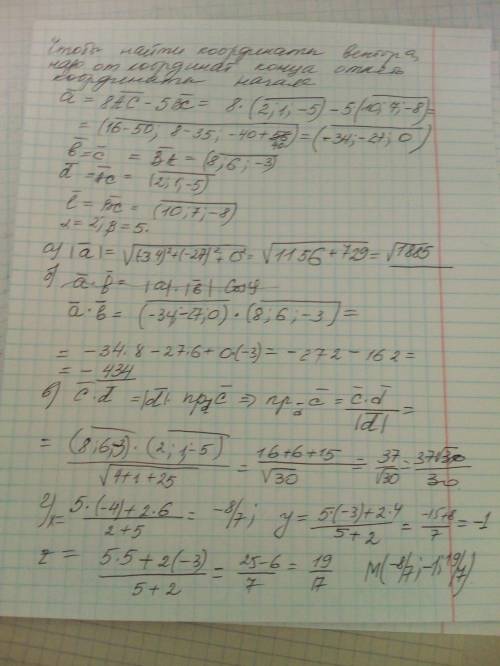 Чтобы найти координаты вектора,
надо от координат конца отнять
координаты начала
a̅ = 8A̅C̅ - 5B̅C̅ = 8·(2; 1; -5) - 5(10; 7; -8) =
= (16-50; 8-35; -40+40) = (-34; -27; 0)
b̅ = c̅ = B̅A̅ = (8; 6; -3)
d̅ = A̅C̅ = (2; 1; -5)
l̅ = B̅C̅ = (10; 7; -8)
α = 2, β = 5.
а) |a̅| = √(-34)²+(-27)²+0² = √1156+729 = √1885
б) a̅·b̅ = |a|·|b̅| cos φ
a̅·b̅ = (-34; -27; 0)·(8; 6; -3) =
= -34·8 - 27·6 + 0·(-3) = -272 - 162 =
= -434
в) c̅·d̅ = |d̅|· пр_d c̅ => пр_d c̅ = c̅·d̅ / |d̅| =
= (8; 6; -3)·(2; 1; -5) / √4+1+25 = 16+6+15 / √30 = 37/√30 = 37√30 / 30
г) x = 5·(-4)+2·6 / 2+5 = -8/7; y = 5·(-3)+2·4 / 5+2 = -15+8 / 7 = -1
z = 5·5+2(-3) / 5+2 = 25-6 / 7 = 19/7 M(-8/7; -1; 19/7)